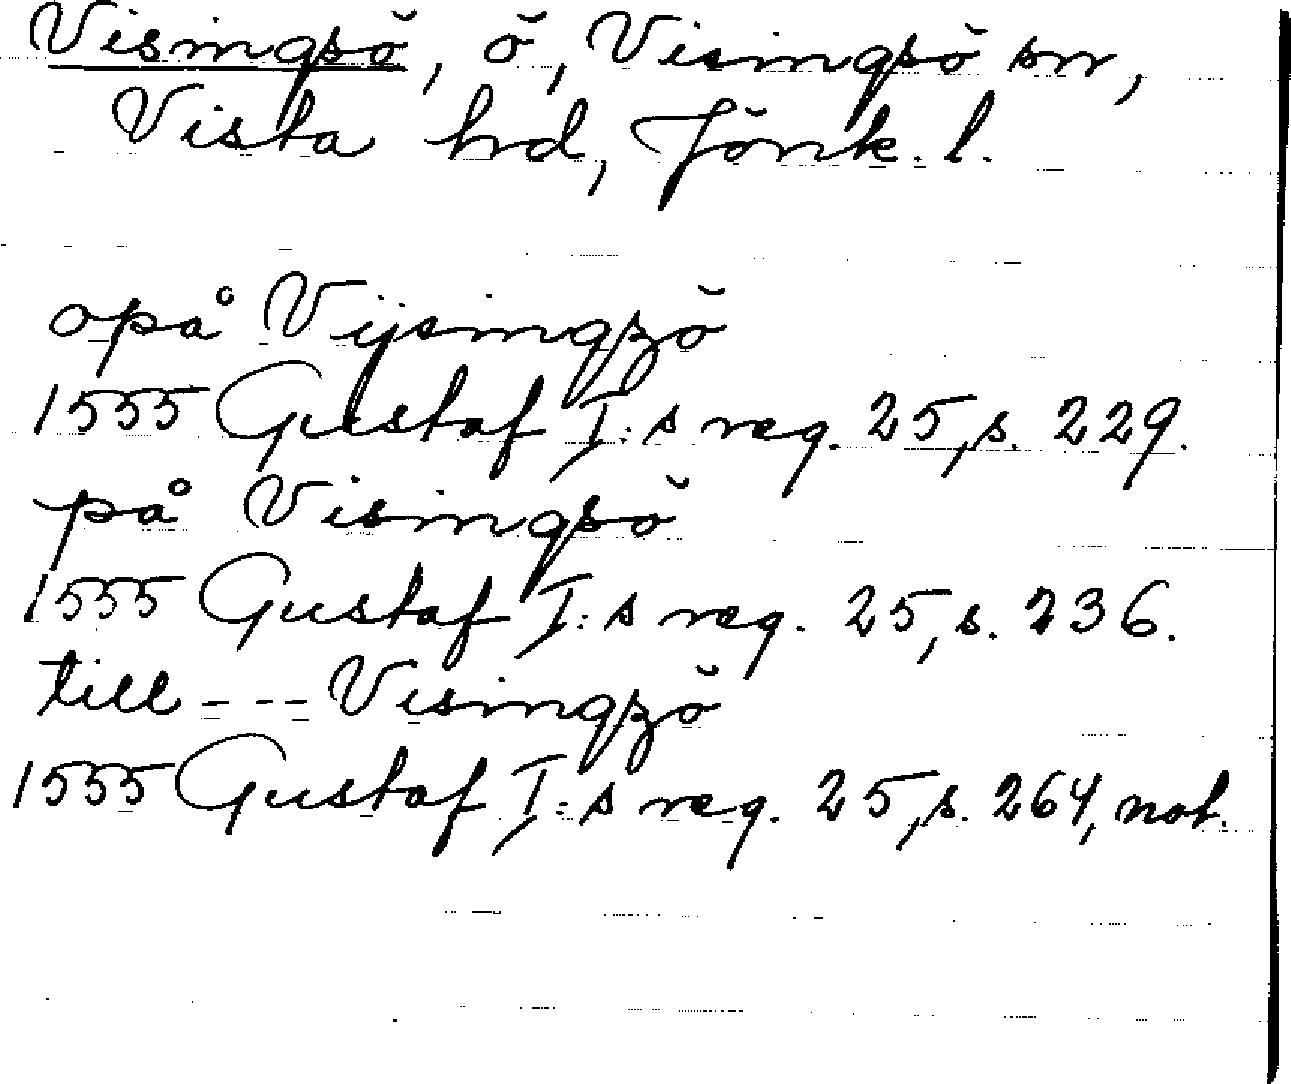 Visingsö, ö, Visingsö sn,
Vista hd, Jönk. l.
opå Vijsingzö
1555 Gustaf I:s reg. 25, s. 229.
på Visingsö
1555 Gustaf I:s reg. 25, s. 236.
till --- Visingzö
1555 Gustaf I:s reg. 25, s. 264, not.